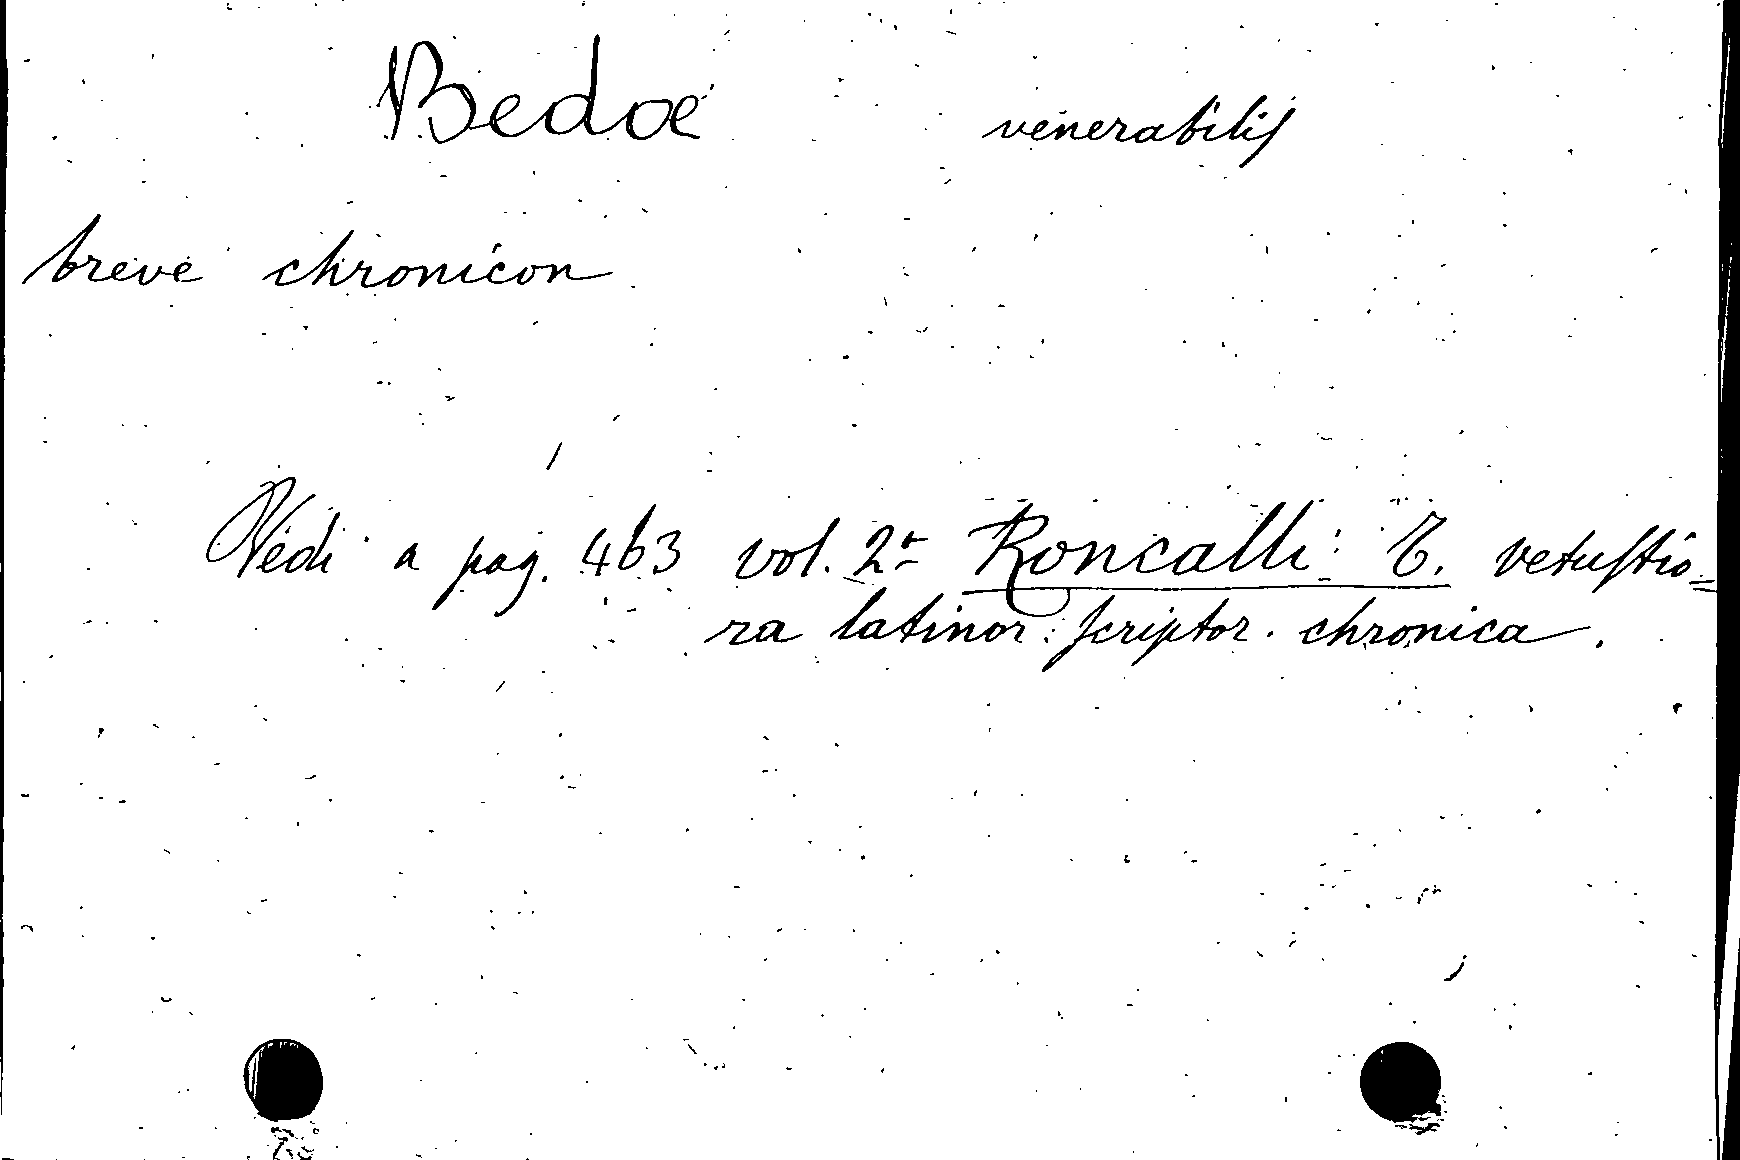 Bedae venerabilis
breve chronicon
Vedi a pag. 463 vol. 2º Roncalli: T. vetustio=
ra latinor. scriptor. chronica.